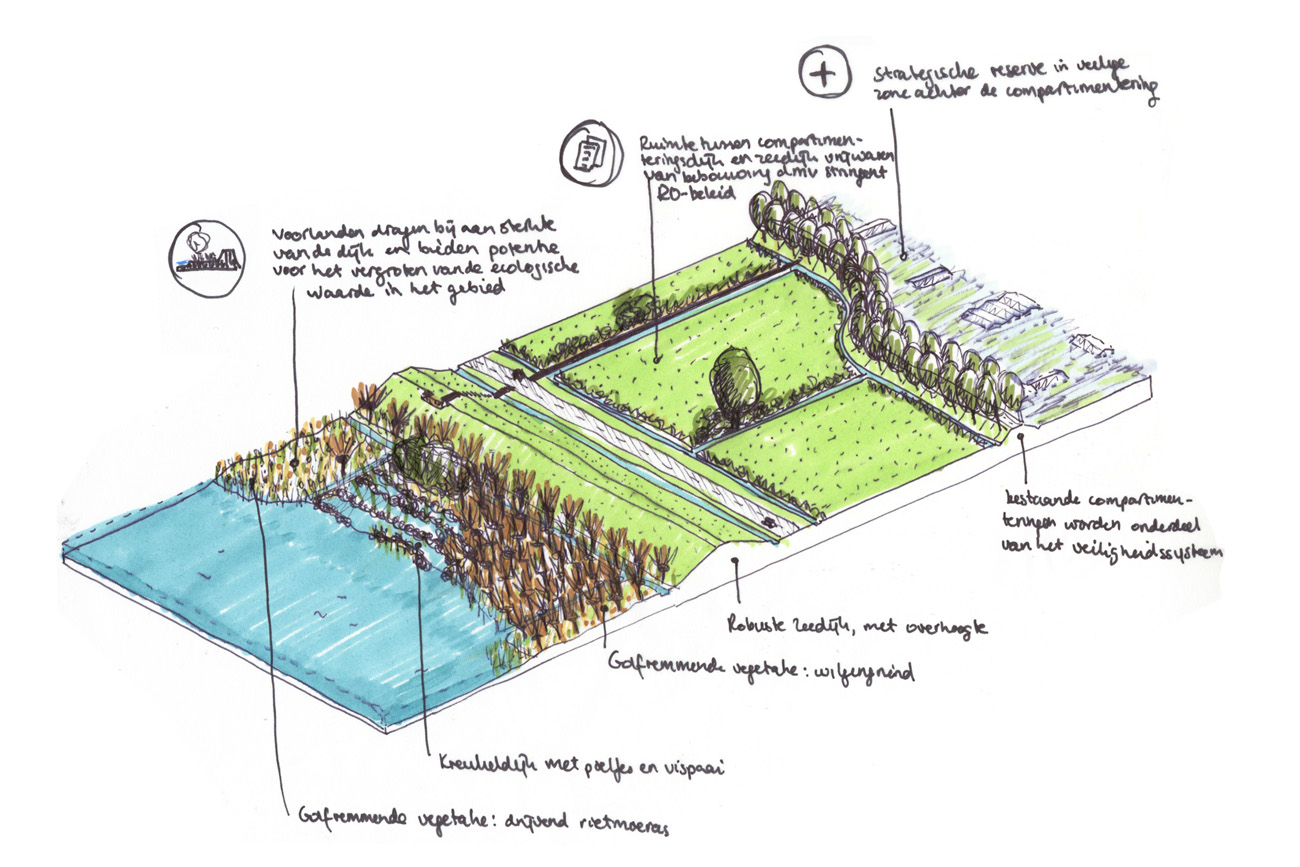 Strategische reserve in veilige
zone achter de compartimentering
Ruimte tussen compartimen-
teringsdijk en zeedijk vrijwaren
van bebouwing dmv stringent
RO-beleid
Voorlanden dragen bij aan sterkte
van de dijk en bieden potentie
voor het vergroten van de ecologische
waarde in het gebied
bestaande compartimen-
teringen worden onderdeel
van het veiligheidssysteem
Robuste zeedijk, met overhoogte
Golfremmende vegetatie: wilgengriend
Kreukeldijk met poeltjes en vispaai
Golfremmende vegetatie: drijvend rietmoeras